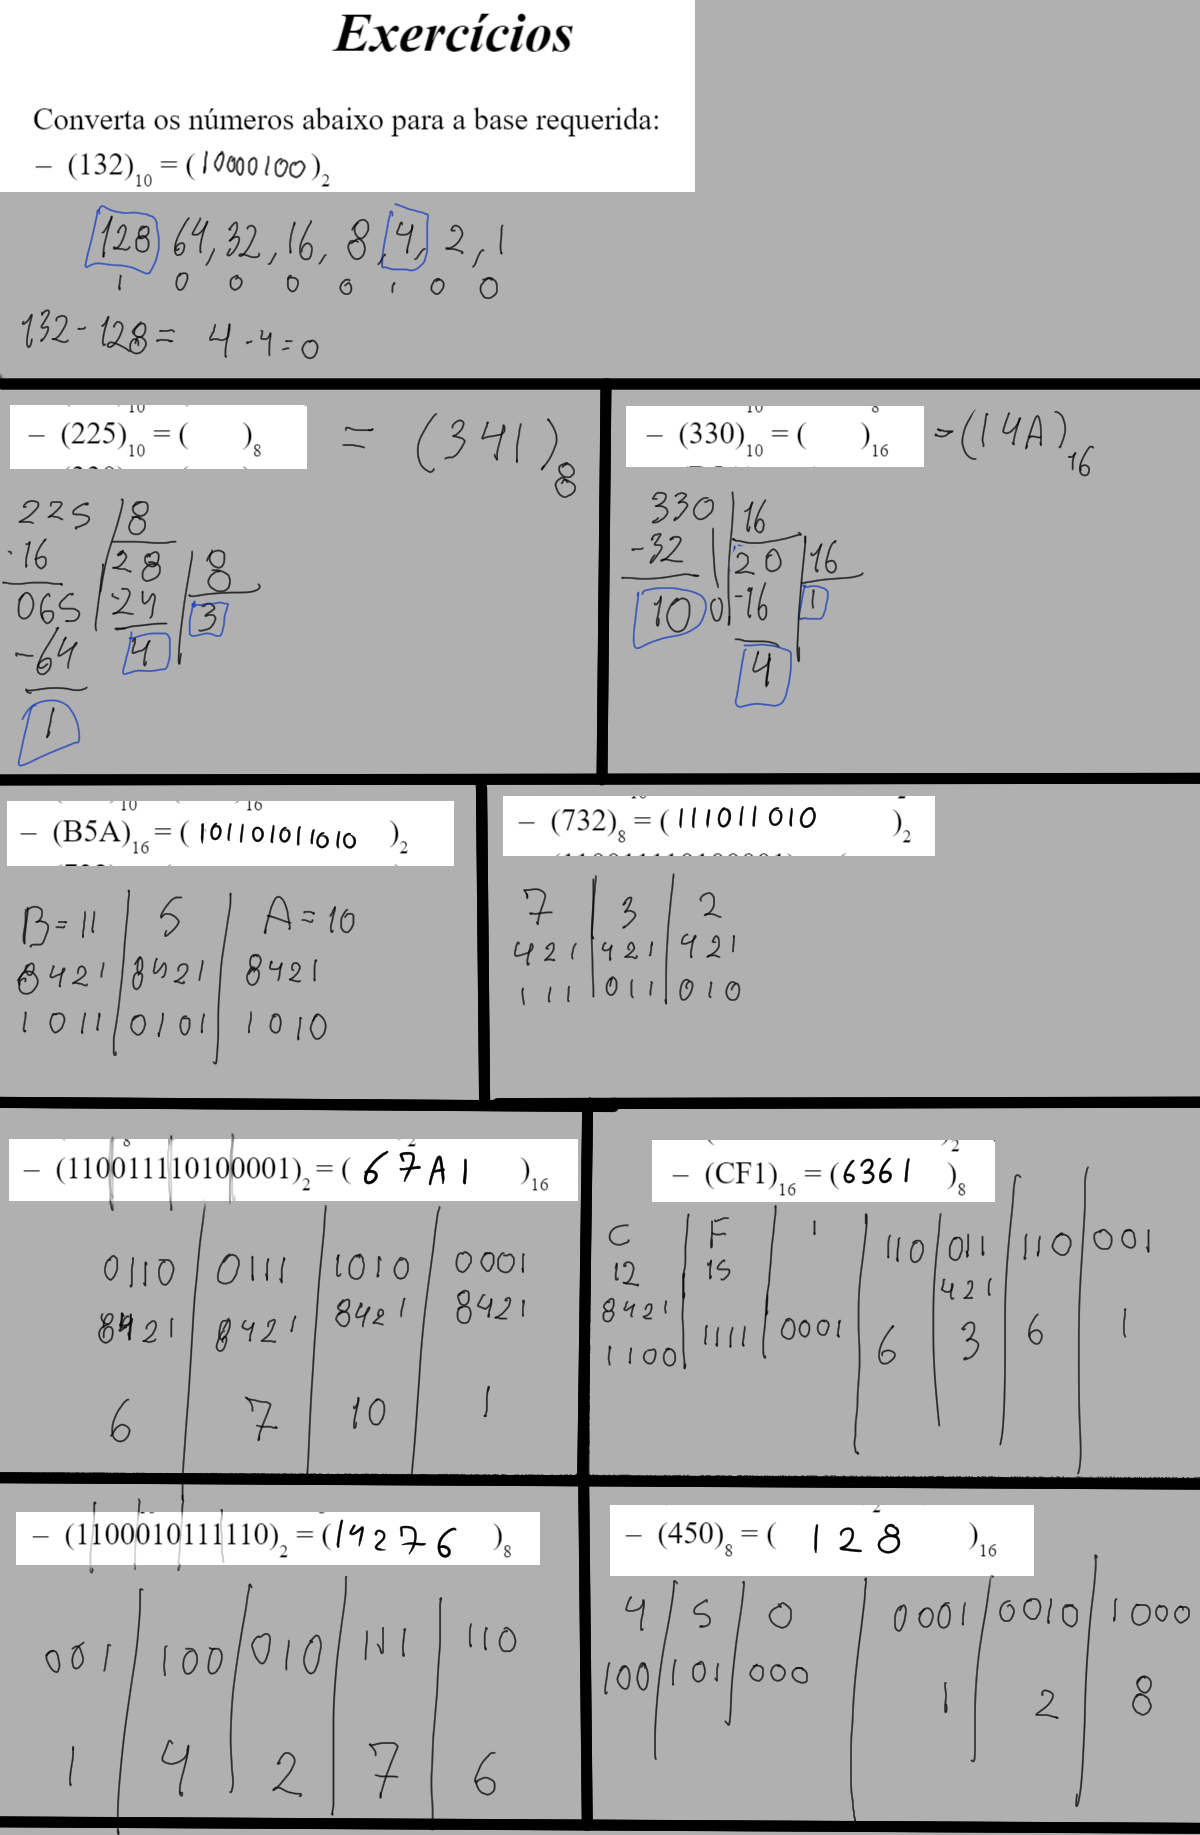 Exercícios
Converta os números abaixo para a base requerida:
– (132)10 = (10000100)2
128 64, 32, 16, 8, 4, 2, 1
1 0 0 0 0 1 0 0
132 - 128 = 4 - 4 = 0
– (225)10 = ( )8 = (341)8
225 8
-16 28 8
065 -24 3
-64 4
1
– (330)10 = ( )16 = (14A)16
330 16
-32 20 16
10 0 -16 1
4
– (B5A)16 = (101101011010)2
B = 11 5 A = 10
8421 8421 8421
1011 0101 1010
– (732)8 = (111011010)2
7 3 2
421 421 421
111 011 010
– (110011110100001)2 = (67A1)16
0110 0111 1010 0001
8421 8421 8421 8421
6 7 10 1
– (CF1)16 = (6361)8
C F 1 110 011 110 001
12 15 421
8421
1100 1111 0001 6 3 6 1
– (1100010111110)2 = (14276)8
001 100 010 111 110
1 4 2 7 6
– (450)8 = (128)16
4 5 0 0001 0010 1000
100 101 000 1 2 8